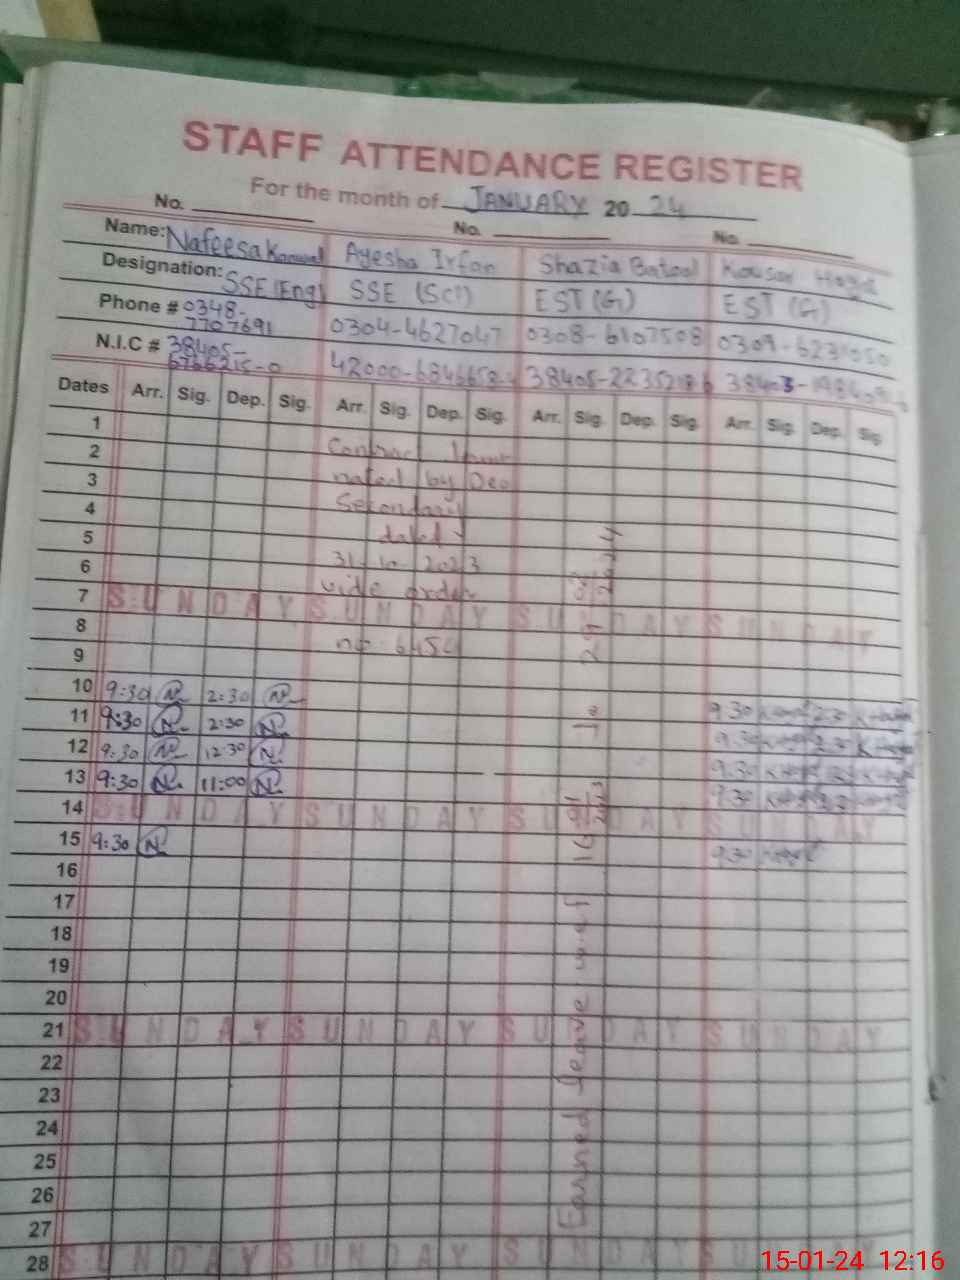 STAFF ATTENDANCE REGISTER
For the month of JANUARY 20 24
No. No. No.
Name: Nafeesa Kanwal Ayesha Irfan Shazia Batool Kousar
Designation: SSE (Eng) SSE (Sci) EST (G) EST (G)
Phone # 0348-7707691 0304-4627047 0308-6107508 0309-6231050
N.I.C # 38405- 42000- 38405- 38403-
Dates Arr. Sig. Dep. Sig. Arr. Sig. Dep. Sig. Arr. Sig. Dep. Sig. Arr. Sig. Dep. Sig.
1
2 Contract
3 nated by Deo
4 Secondary
5 dated
6 31-10-2023
7 SUNDAY SUNDAY SUNDAY SUNDAY
vide order
8
no. 6454
9
10 9:30 N 2:30 N 9:30
11 9:30 N 2:30 N 9:30
12 9:30 N 12:30 N 9:30
13 9:30 N 11:00 N 9:30
14 SUNDAY SUNDAY SUNDAY SUNDAY
15 9:30 N 9:30
16
17
18
19
20
21 SUNDAY SUNDAY SUNDAY SUNDAY
22
23
24
25
26
27
28 SUNDAY SUNDAY SUNDAY SUNDAY
Earned leave w.e.f to
15-01-24 12:16